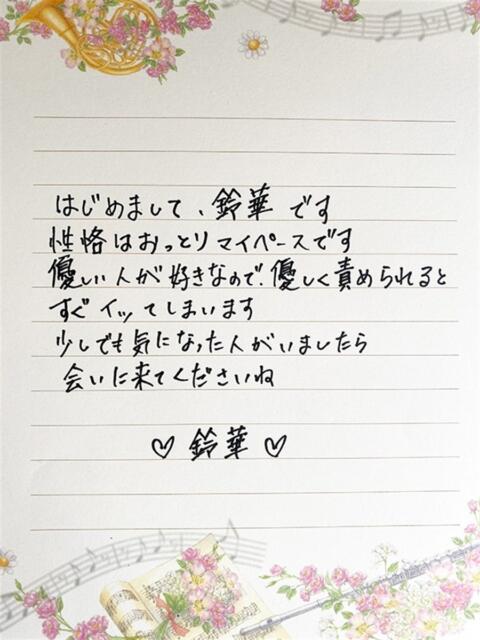 はじめまして、鈴華です
性格はおっとりマイペースです
優しい人が好きなので、優しく責められると
すぐイッてしまいます
少しでも気になった人がいましたら
会いに来てくださいね
♡ 鈴華 ♡